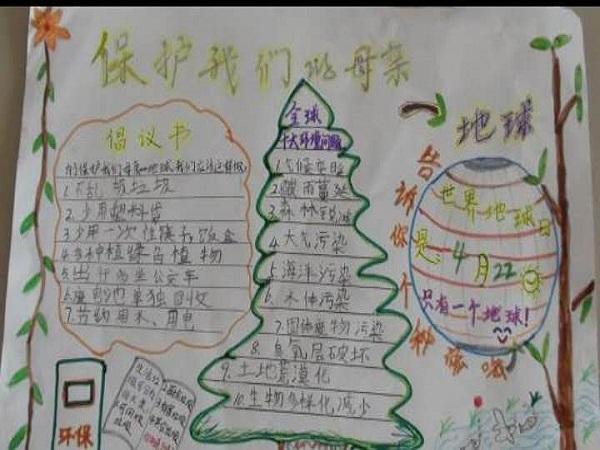 保护我们的母亲
地球
倡议书
为了保护我们母亲地球,我们应该这样做。
1.不乱扔垃圾
2.少用塑料袋
3.少用一次性筷子、饭盒
4.多种植绿色植物
5.出行多坐公交车
6.废电池单独回收
7.节约用水、用电
全球
十大环境问题
1.气候变暖
2.酸雨蔓延
3.森林锐减
4.大气污染
5.海洋污染
6.水体污染
7.固体废物污染
8.臭氧层破坏
9.土地荒漠化
10.生物多样化减少
告诉你个秘密哦
世界地球日
是:4月22
只有一个地球!
环保